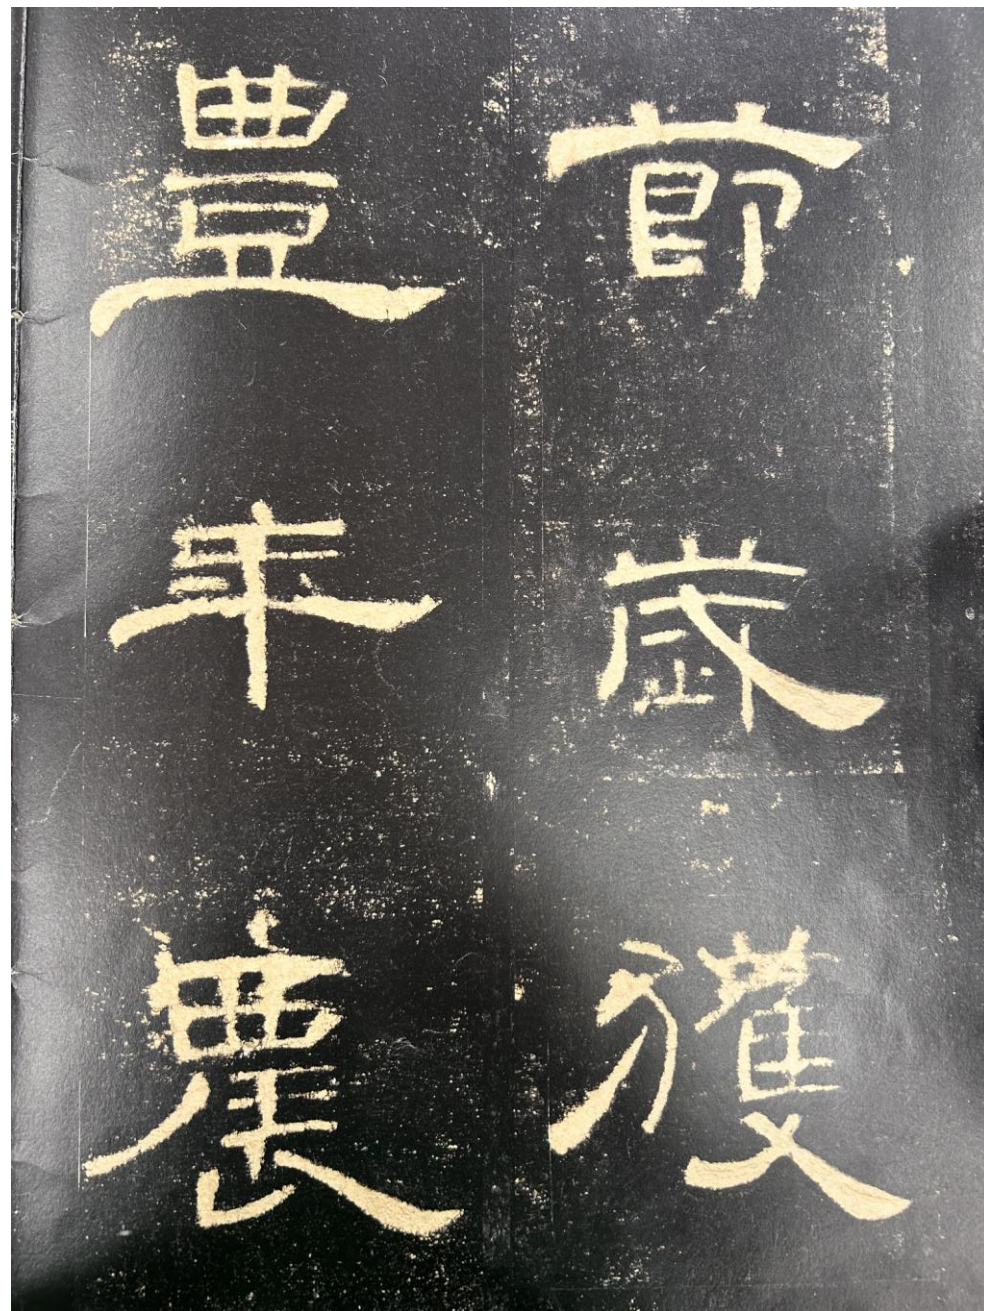 節歲獲
豊年農